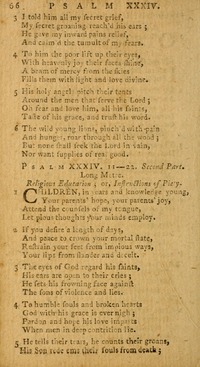 66 PSALM XXXIV.
3 I told him all my secret grief,
My secret groaning reach'd his ears;
He gave my inward pains relief,
And calm'd the tumult of my fears.
4 To him the poor lift up their eyes,
With heav'nly joy their faces shine,
A beam of mercy from the skies
Fills them with light and love divine.
5 His holy angels pitch their tents
Around the men that serve the Lord;
Oh fear and love him, all his saints,
Taste of his grace, and trust his word.
6 The wild young lions, pinch'd with pain
And hunger, roar through all the wood;
But none shall seek the Lord in vain,
Nor want supplies of real good.
PSALM XXXIV. 11—22. Second Part.
Long Metre.
Religious Education; or, Instructions of Piety.
1 CHILDREN, in years and knowledge young,
Your parents' hope, your parents' joy,
Attend the counsels of my tongue,
Let pious thoughts your minds employ.
2 If you desire a length of days,
And peace to crown your mortal state,
Restrain your feet from impious ways,
Your lips from slander and deceit.
3 The eyes of God regard his saints,
His ears are open to their cries;
He sets his frowning face against
The sons of violence and lies.
4 To humble souls and broken hearts
God with his grace is ever nigh;
Pardon and hope his love imparts
When men in deep contrition lie.
5 He tells their tears, he counts their groans,
His Son redeems their souls from death;